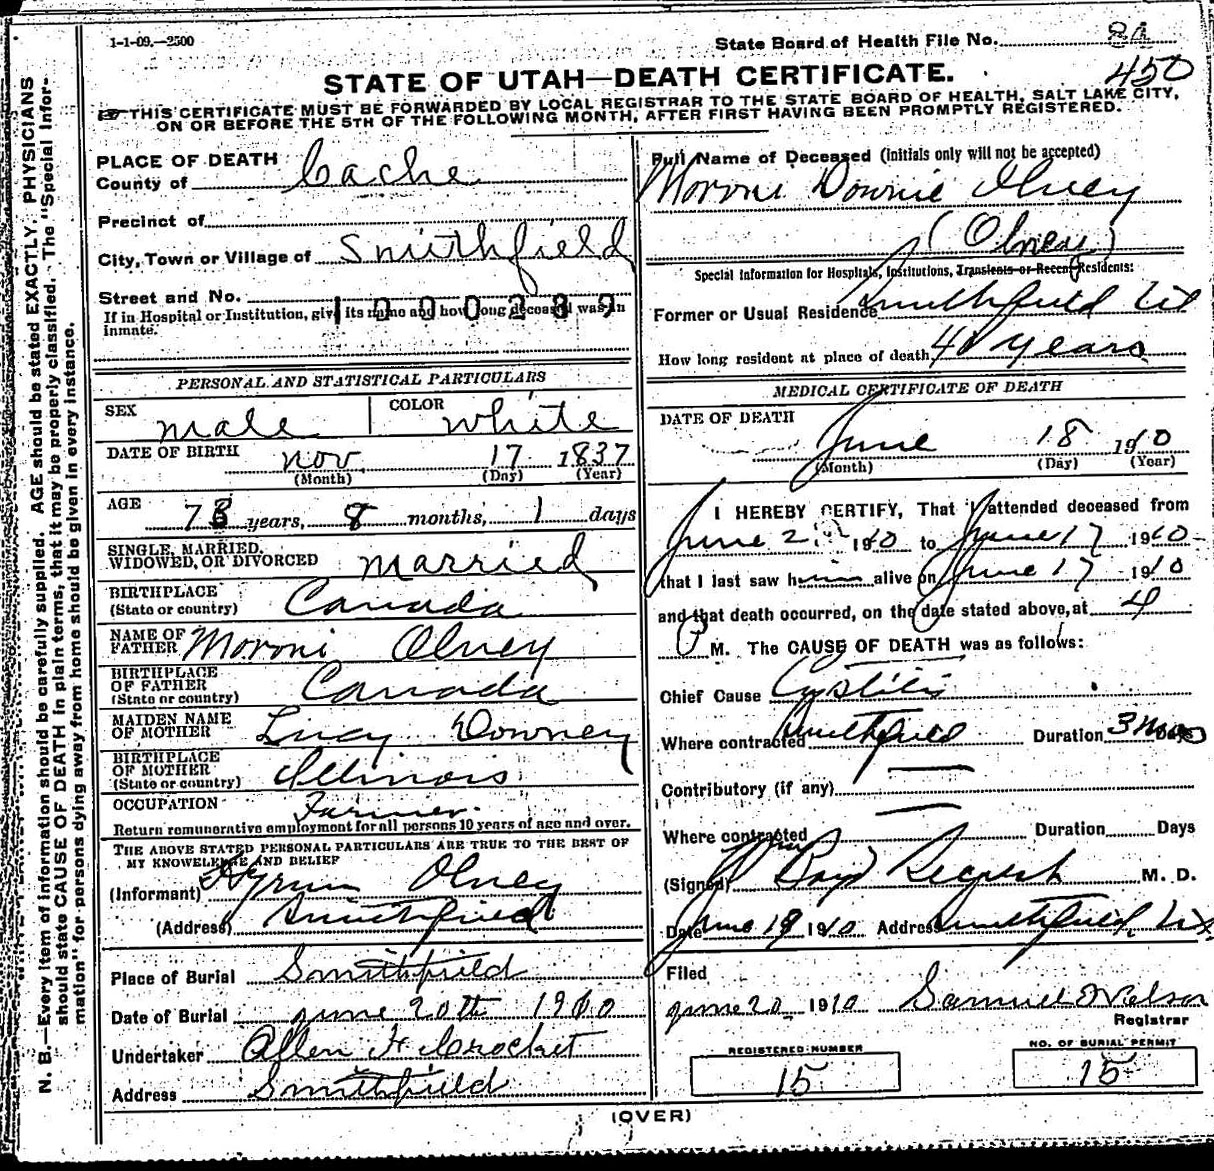 1-1-09.—2500
State Board of Health File No. 82
450
STATE OF UTAH—DEATH CERTIFICATE.
THIS CERTIFICATE MUST BE FORWARDED BY LOCAL REGISTRAR TO THE STATE BOARD OF HEALTH, SALT LAKE CITY,
ON OR BEFORE THE 5TH OF THE FOLLOWING MONTH, AFTER FIRST HAVING BEEN PROMPTLY REGISTERED.
N. B.—Every item of information should be carefully supplied. AGE should be stated EXACTLY. PHYSICIANS
should state CAUSE OF DEATH in plain terms, that it may be properly classified. The "Special Infor-
mation" for persons dying away from home should be given in every instance.
PLACE OF DEATH
County of Cache
Precinct of
City, Town or Village of Smithfield
Street and No.
If in Hospital or Institution, give its name and how long deceased was an
inmate.
1000289
PERSONAL AND STATISTICAL PARTICULARS
SEX male COLOR white
DATE OF BIRTH nov 17 1837
(Month) (Day) (Year)
AGE 73 years, 8 months, 1 days
SINGLE, MARRIED,
WIDOWED, OR DIVORCED married
BIRTHPLACE
(State or country) Canada
NAME OF
FATHER Moroni Olney
BIRTHPLACE
OF FATHER
(State or country) Canada
MAIDEN NAME
OF MOTHER Lucy Downey
BIRTHPLACE
OF MOTHER
(State or country) Illinois
OCCUPATION Farmer
Return remunerative employment for all persons 10 years of age and over.
THE ABOVE STATED PERSONAL PARTICULARS ARE TRUE TO THE BEST OF
MY KNOWELEDGE AND BELIEF
(Informant) Hyrum Olney
(Address) Smithfield
Place of Burial Smithfield
Date of Burial june 20th 1910
Undertaker Allen H Crocket
Address Smithfield
Full Name of Deceased (initials only will not be accepted)
Moroni Downie Olney
(Olney)
Special Information for Hospitals, Institutions, Transients or Recent Residents:
Former or Usual Residence Smithfield Ut
How long resident at place of death 40 years
MEDICAL CERTIFICATE OF DEATH
DATE OF DEATH
June 18 1910
(Month) (Day) (Year)
I HEREBY CERTIFY, That I attended deceased from
June 2 1910 to June 17 1910
that I last saw him alive on June 17 1910
and that death occurred, on the date stated above, at 4
P M. The CAUSE OF DEATH was as follows:
Chief Cause Cystitis
Where contracted Smithfield Duration 3 mos
Contributory (if any) —
Where contracted — Duration Days
(Signed) Boyd M. D.
Date June 19 1910 Address Smithfield, Ut
Filed
june 20 1910 Samuel Nelson
Registrar
REGISTERED NUMBER
15
NO. OF BURIAL PERMIT
15
(OVER)